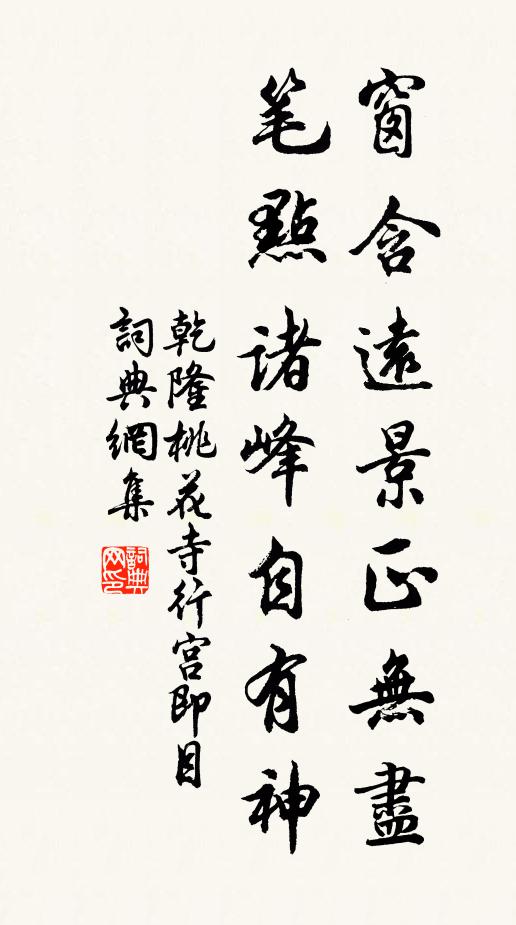 窗含遠景正無盡
笔點诸峰自有神
乾隆桃花寺行宫即目
詞典網集
詞典网印